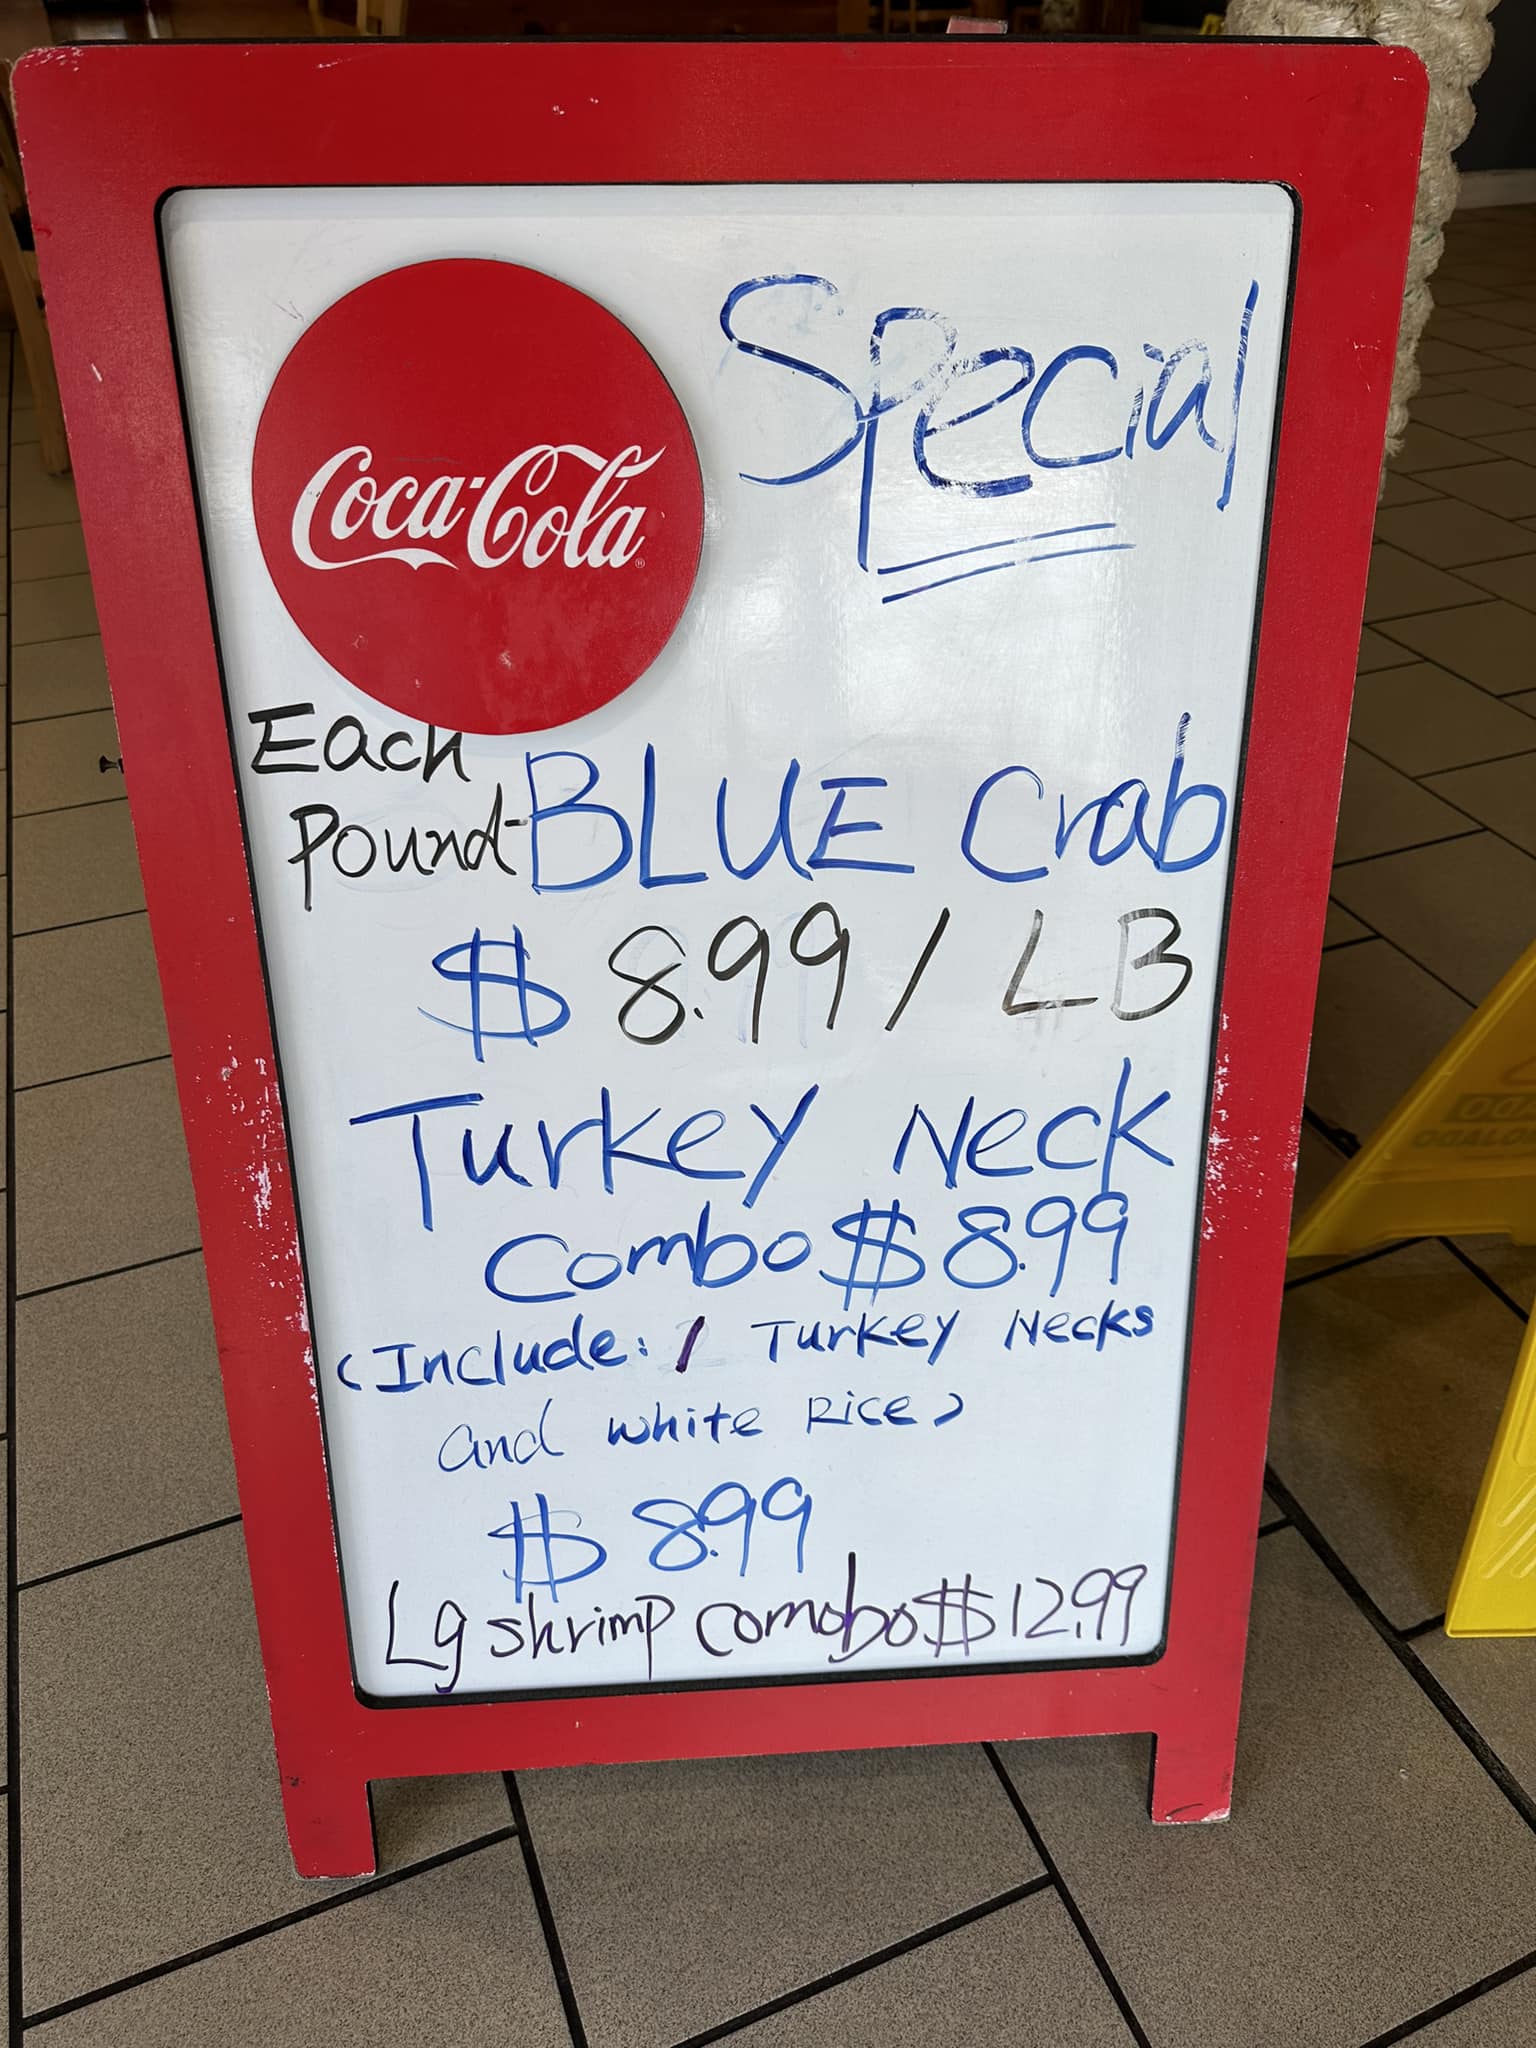 Coca-Cola
Special
Each
Pound-BLUE Crab
$ 8.99 / LB
Turkey Neck
Combo $8.99
(Include: 1 Turkey Necks
and white Rice)
$ 8.99
Lg shrimp comobo $12.99